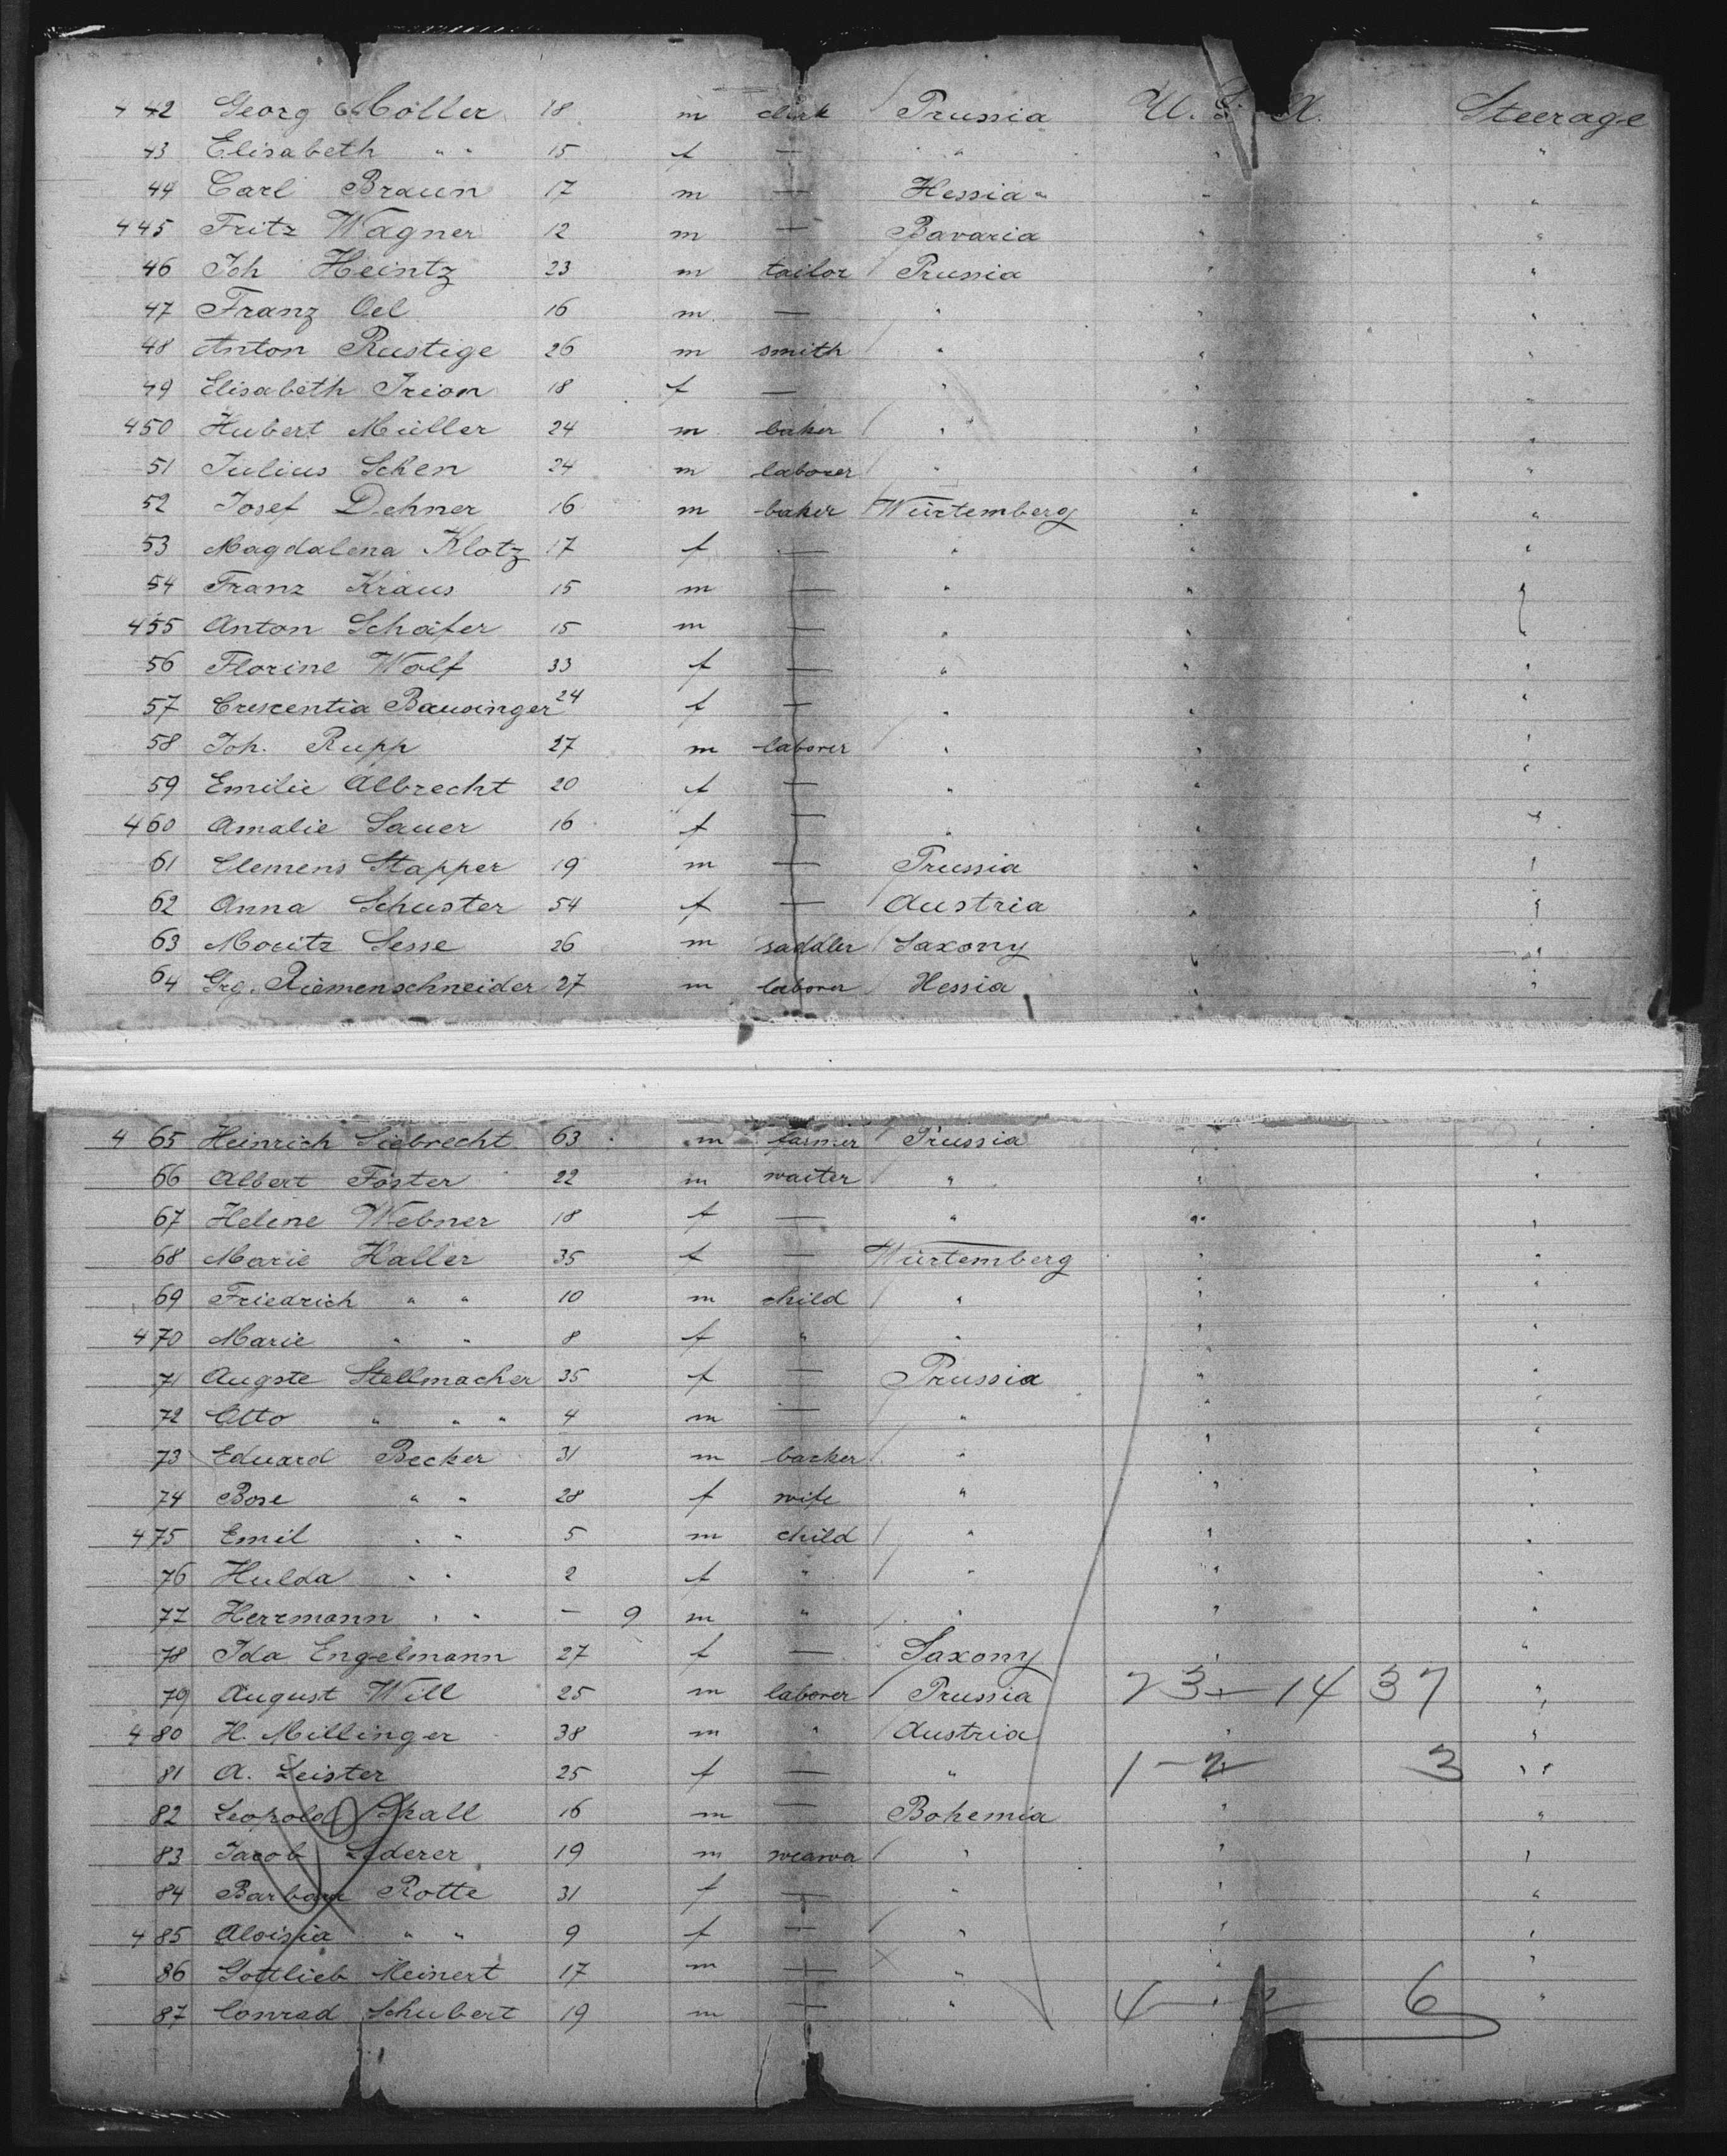 442 Georg Möller 18 m clerk Prussia U. S. A. Steerage
43 Elisabeth " " 15 f — " " "
44 Carl Braun 17 m — Hessia " "
445 Fritz Wagner 12 m — Bavaria " "
46 Joh Heintz 23 m tailor Prussia " "
47 Franz Oel 16 m — " " "
48 Anton Rustige 26 m smith " " "
49 Elisabeth Trion 18 f — " " "
450 Hubert Müller 24 m baker " " "
51 Julius Schen 24 m laborer " " "
52 Josef Dehner 16 m baker Würtemberg " "
53 Magdalena Klotz 17 f — " " "
54 Franz Kraus 15 m — " " "
455 Anton Schäfer 15 m — " " "
56 Florine Wolf 33 f — " " "
57 Crescentia Bauoinger 24 f — " " "
58 Joh. Rupp 27 m laborer " " "
59 Emilie Albrecht 20 f — " " "
460 Amalie Sauer 16 f — " " "
61 Clemens Stapper 19 m — Prussia " "
62 Anna Schuster 54 f — Austria " "
63 Moritz Sesse 26 m saddler Saxony " "
64 Grg. Riemenschneider 27 m laborer Hessia " "
465 Heinrich Siebrecht 63 m farmer Prussia " "
66 Albert Föster 22 m waiter " " "
67 Helene Webner 18 f — " " "
68 Marie Haller 35 f — Würtemberg " "
69 Friedrich " " 10 m child " " "
470 Marie " " 8 f " " " "
71 Augste Stellmacher 35 f — Prussia " "
72 Otto " " " 4 m — " " "
73 Eduard Becker 31 m backer " " "
74 Bose " " 28 f wife " " "
475 Emil " " 5 m child " " "
76 Hulda " " 2 f " " " "
77 Herrmann " " — 9 m " " " "
78 Ida Engelmann 27 f — Saxony " "
79 August Will 25 m laborer Prussia 23 — 14 37 "
480 H. Millinger 38 m " Austria " "
81 A. Leister 25 f — " 1 — 2 3 "
82 Leopold Skall 16 m — Bohemia " "
83 Jacob Lederer 19 m weawer " " "
84 Barbara Rotte 31 f — " " "
485 Aloisia " " 9 f — " " "
86 Gottlieb Meinert 17 m — " " "
87 Conrad Schubert 19 m — " 4 — 2 6 "